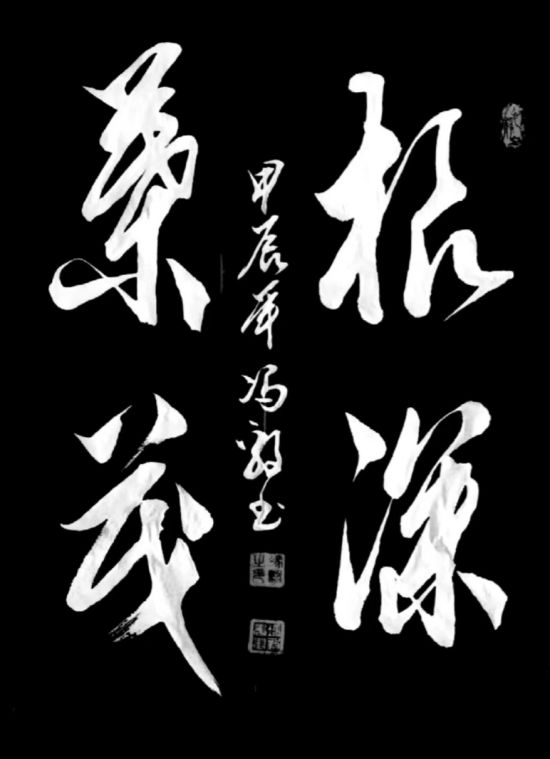 根深
葉茂
甲辰年冯毅书